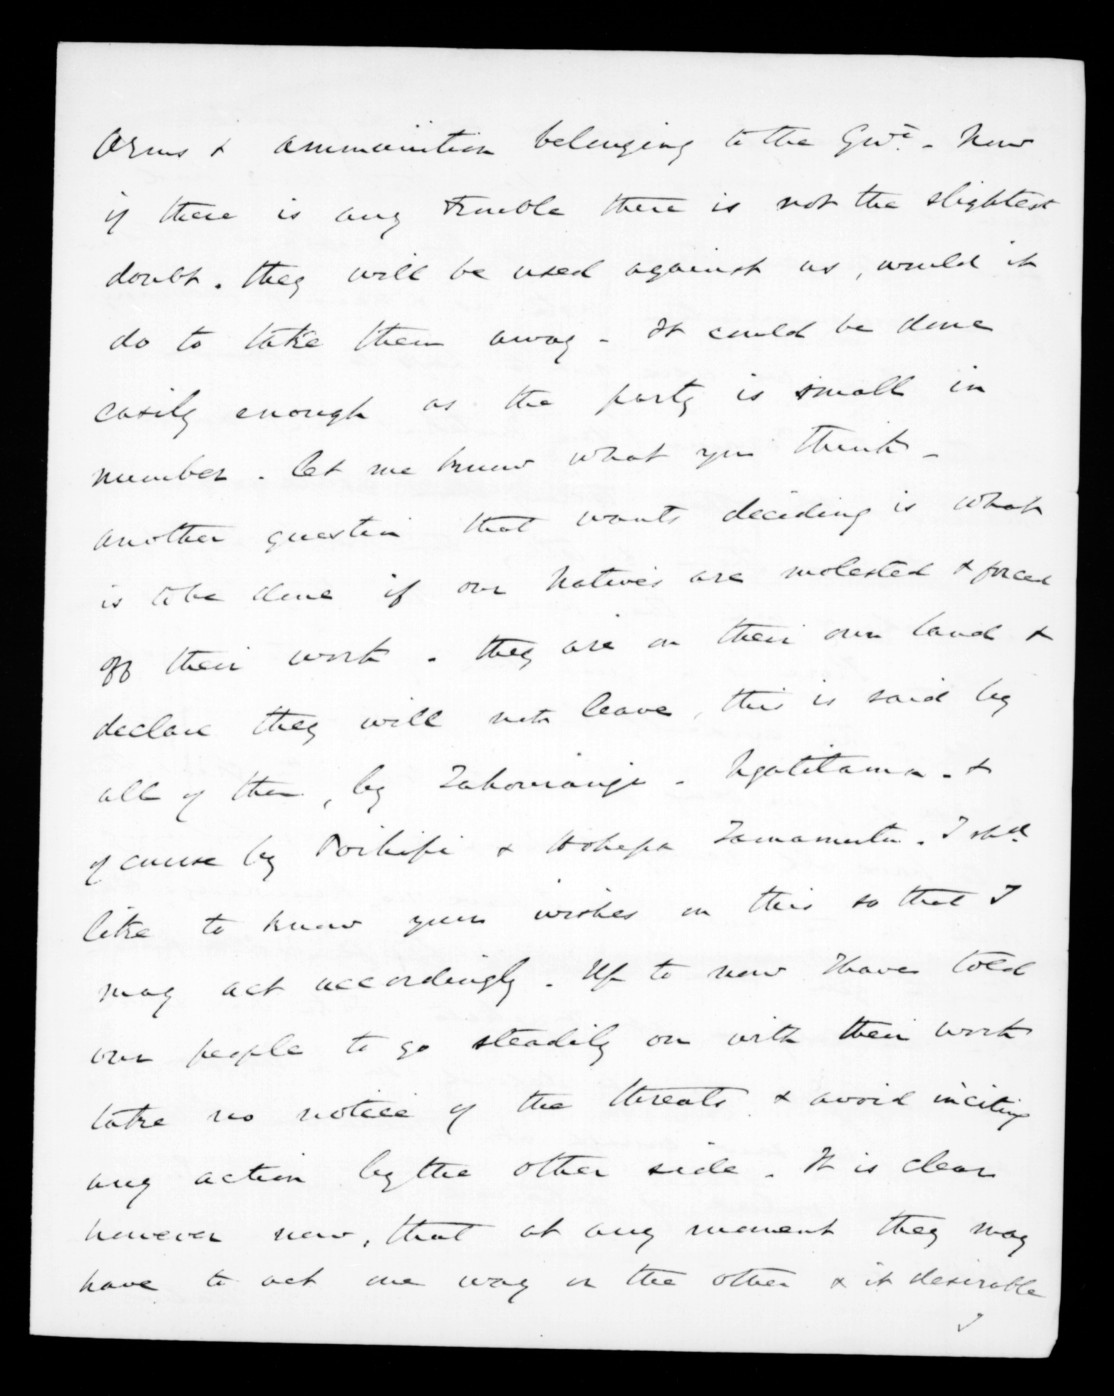 Arms & ammunition belonging to the Govt. - Now
if there is any trouble there is not the slightest
doubt. they will be used against us, would it
do to take them away - It could be done
easily enough as the party is small in
number. let me know what you think -
another question that wants deciding is what
is to be done if our Natives are molested & forced
off their work. they are on their own land &
declare they will not leave, this is said by
all of them, by - Ngatitama - &
of course by Poihipi & Hohepa Tamamutu. I shd
like to know your wishes on this so that I
may act accordingly. Up to now I have told
our people to go steadily on with their work
take no notice of the threats & avoid inciting
any action by the other side. It is clear
however now, that at any moment they may
have to act one way or the other & it desirable